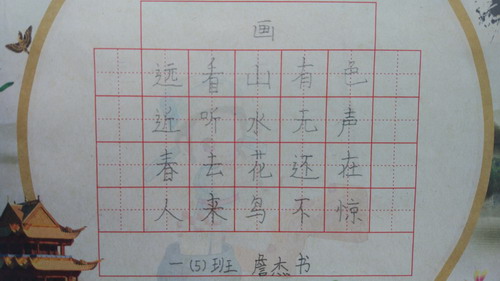 画
远看山有色
近听水无声
春去花还在
人来鸟不惊
一(5)班 詹杰书